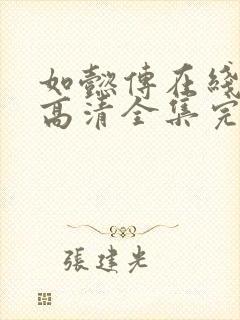 如懿傳在綫
高清全集完
張建光